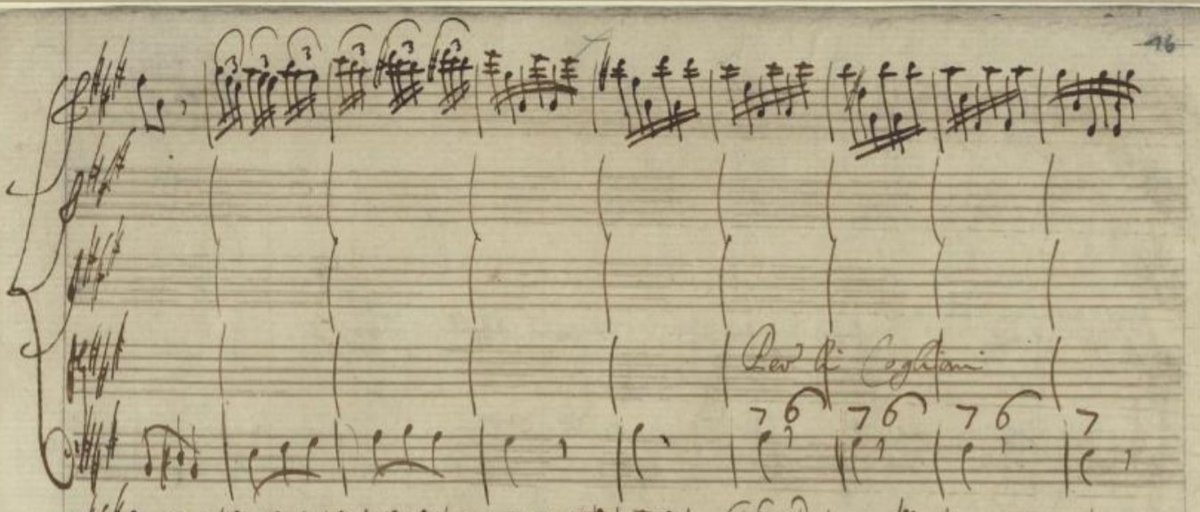 16
3 3 3 3 3 3
Per li Coglioni
7 6 7 6 7 6 7